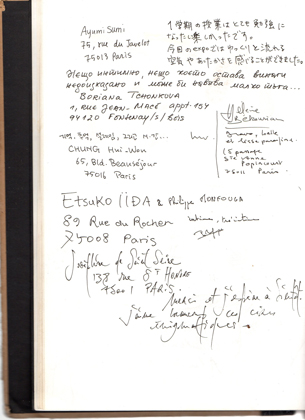 Ayumi Sumi
75, rue du Javelot
75013 Paris
1学期の授業はとても勉強に
なったし楽しかったです。
今回のexpoではゆっくりと流れる
空気やあたたかさを感じることができました。
Нещо интимно, нещо което остава винаги
недоизказано и може би събужда малко
Boriana TCHONKOVA
11, RUE JEAN-MACÉ appt. 154
94120 FONTENAY/S/BOIS
CHUNG Hui-Won
65, Bld. Beauséjour
75016 Paris
Hélène
Bravo, belle
et
15 passage
Ste Anne
Popincourt
75011 Paris
Etsuko IIDA & Philippe MONFOUGA
89 Rue du Rocher
75008 Paris
Joséphine de Saint Seine
138 rue St Honoré
75001 PARIS.
Merci et j'espère à bientôt
J'aime vraiment ces ciels
énigmatiques